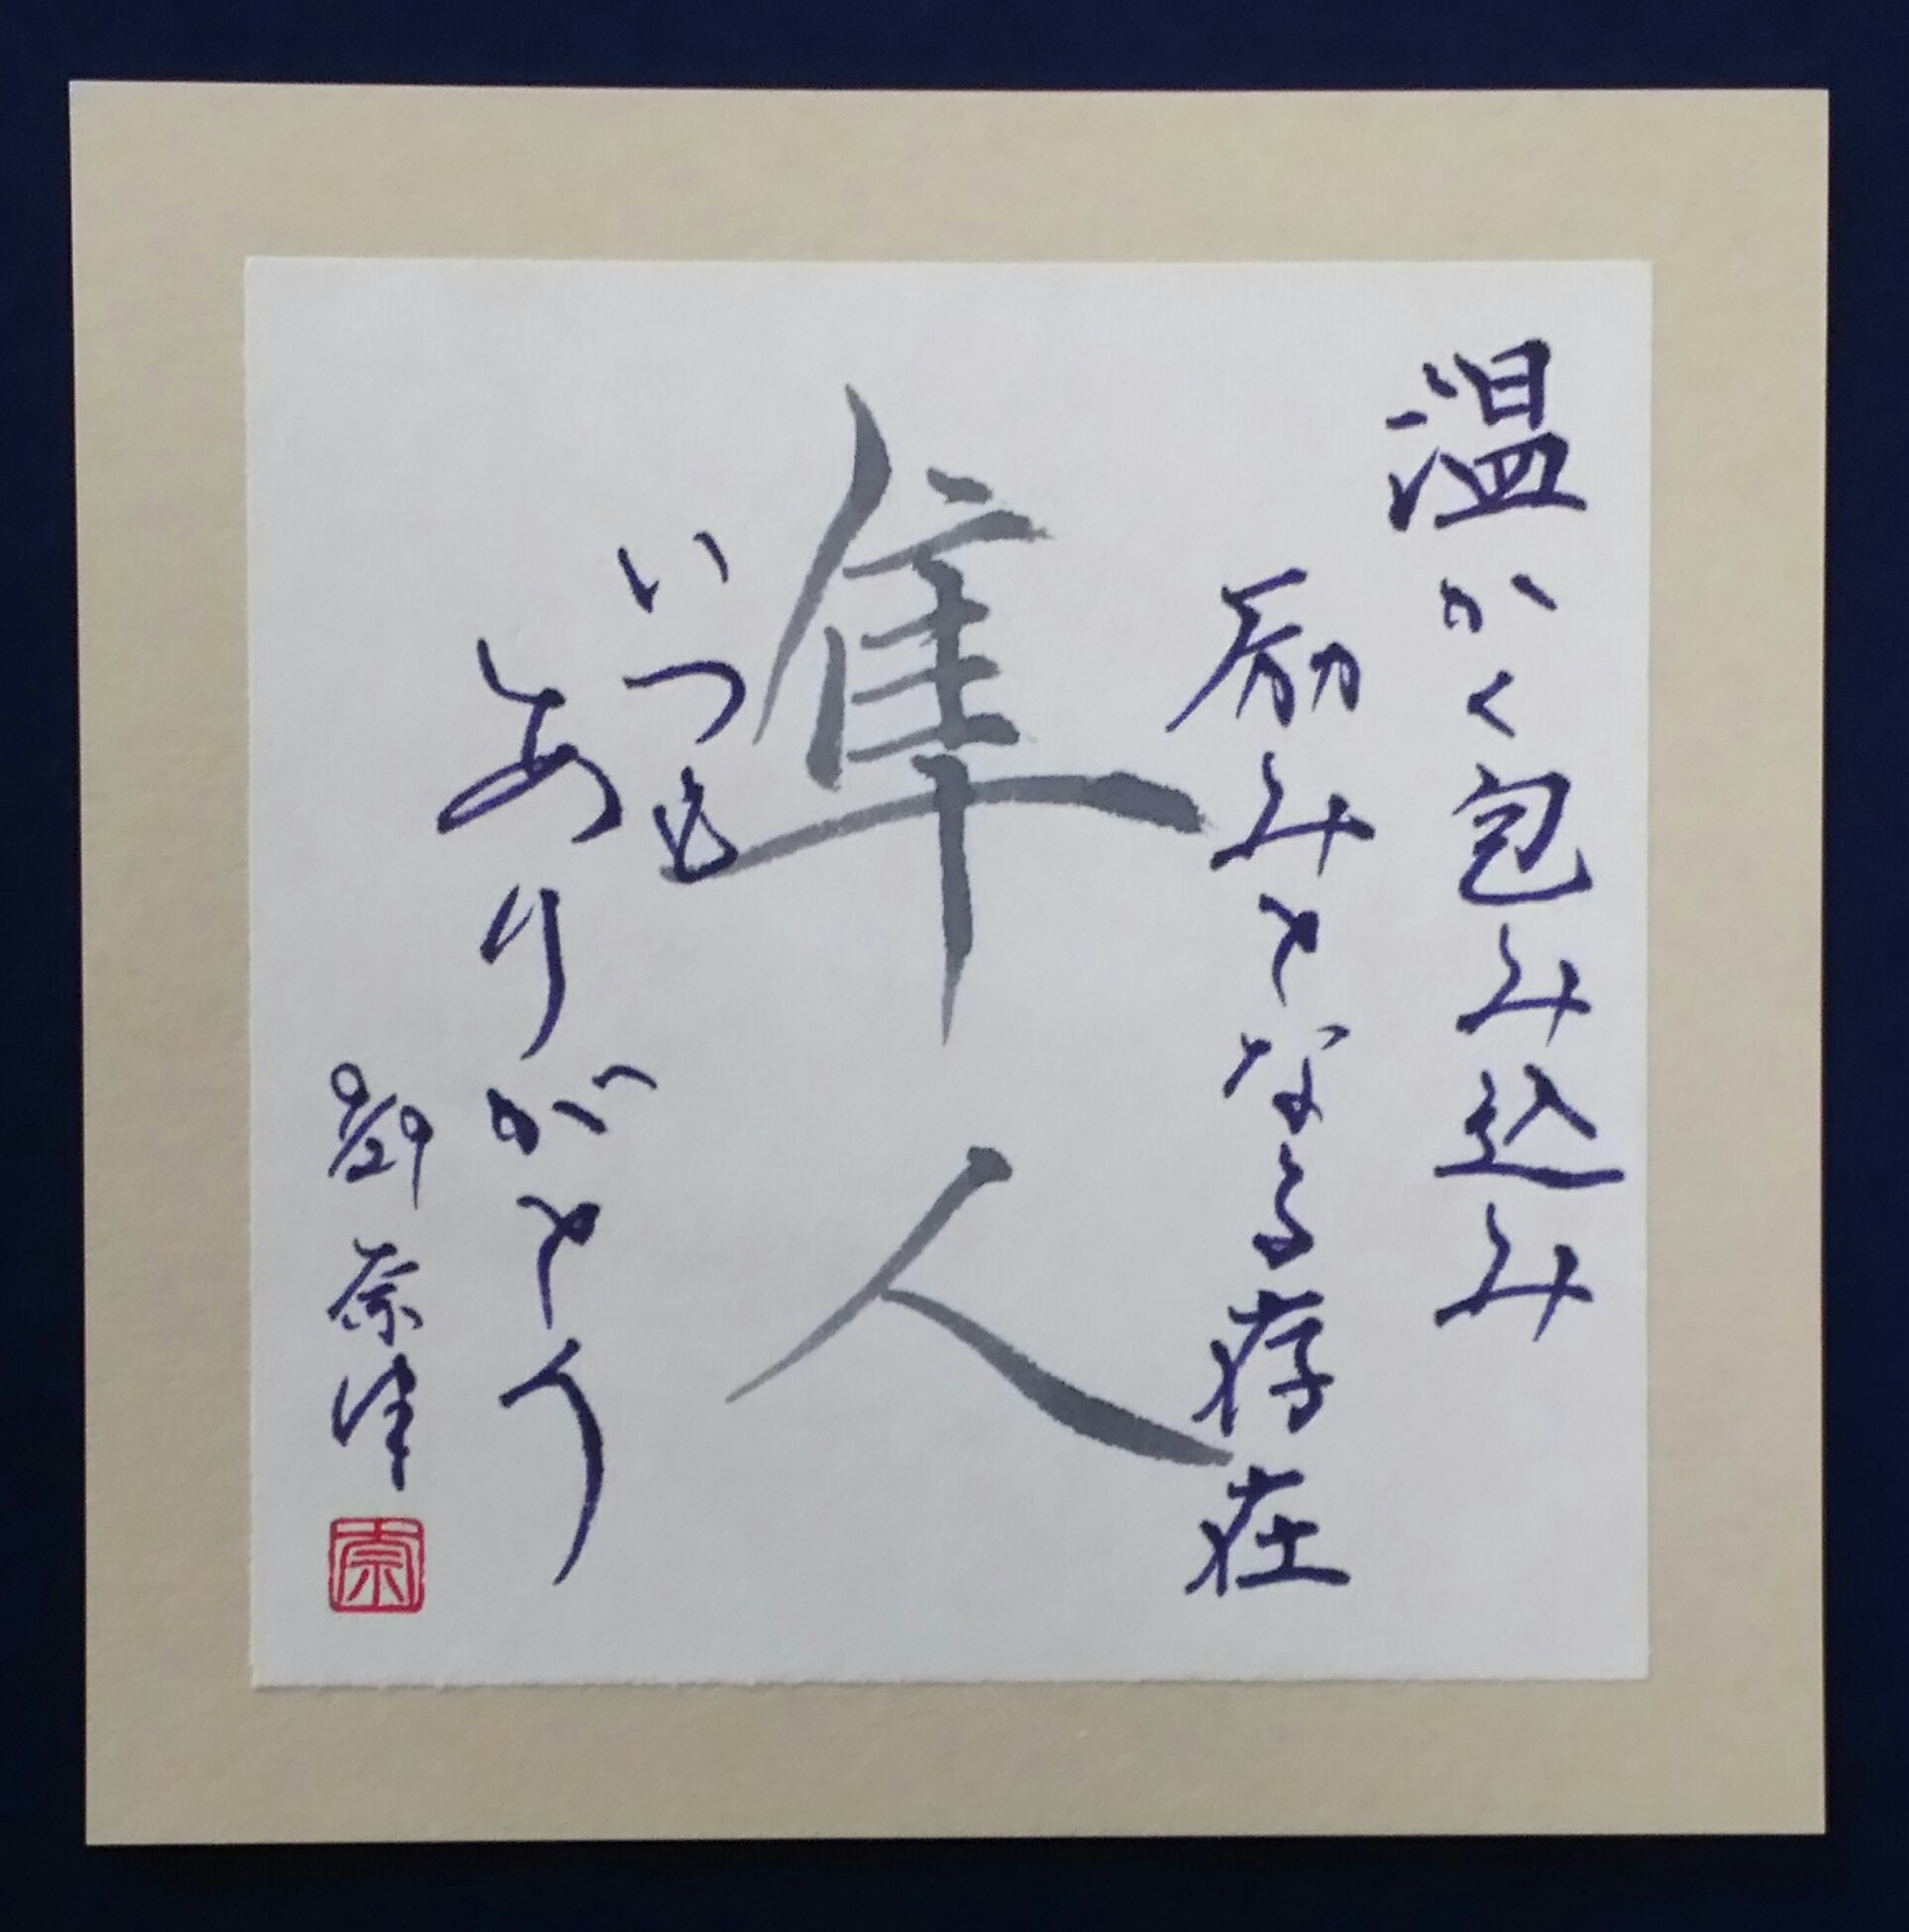 温かく包み込み
励みとなる存在
隼人
いつも
ありがとう
9/29 奈津
奈